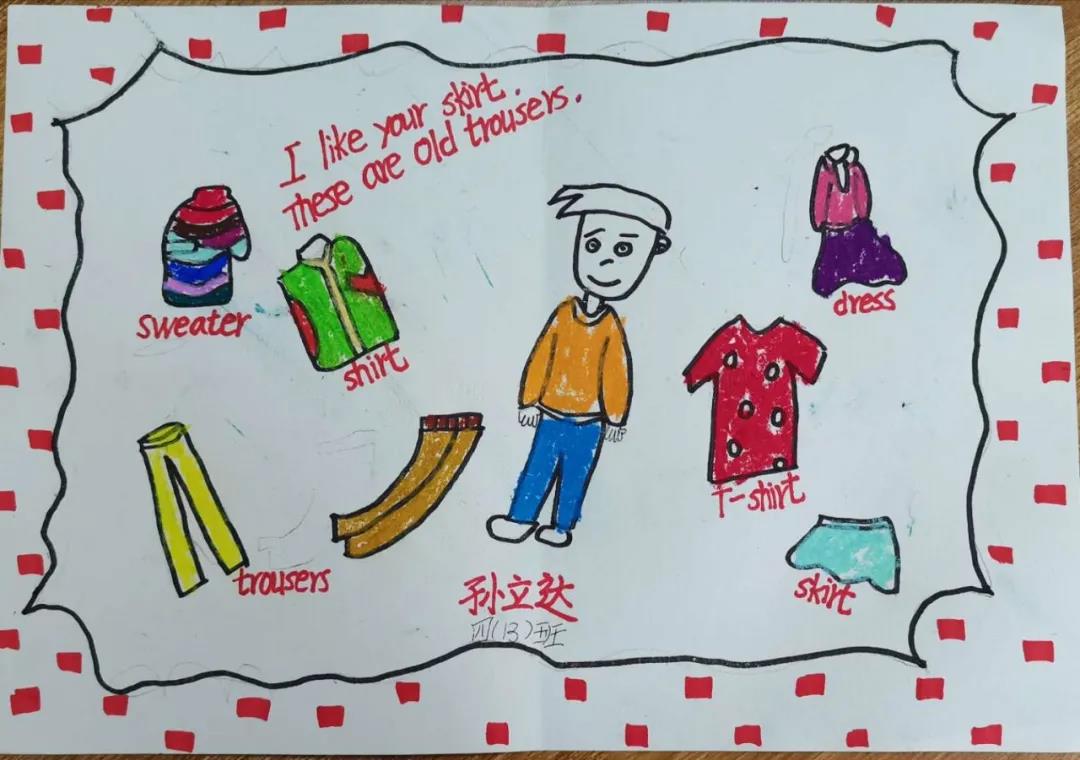 I like your skirt.
These are old trousers.
sweater
shirt
dress
T-shirt
trousers
skirt
孙立达
四(13)班